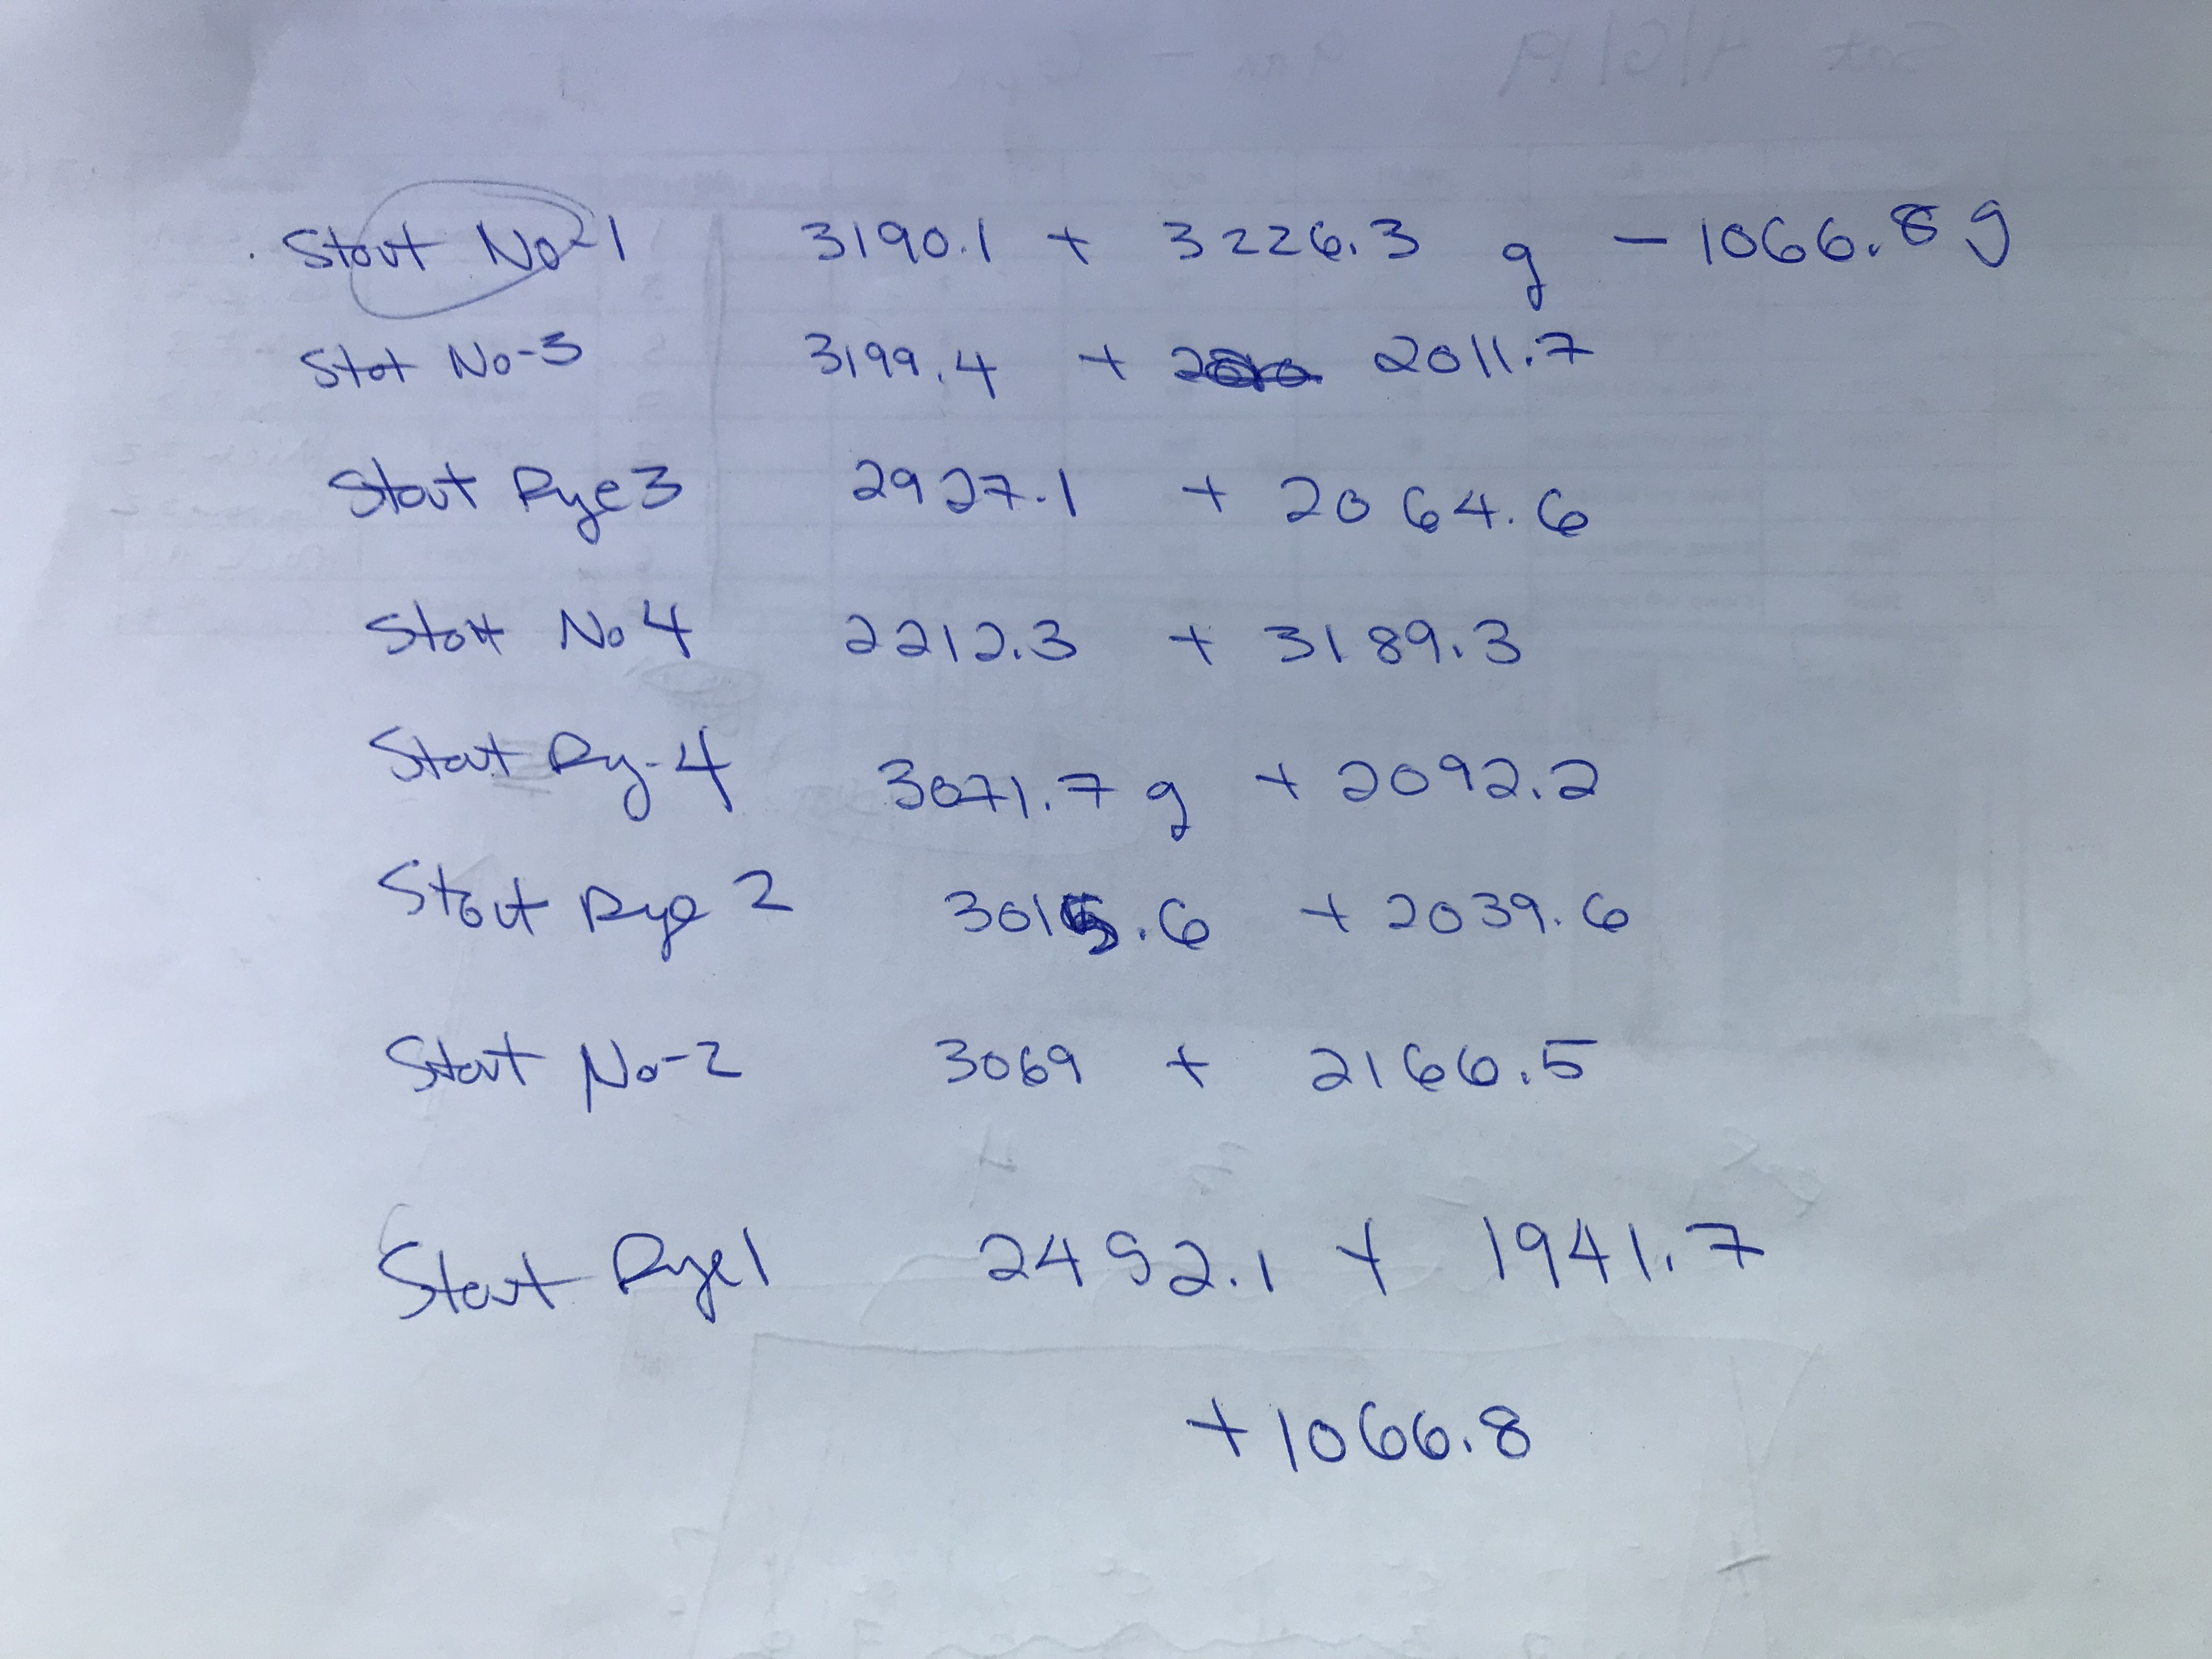 Stout No-1 3190.1 + 3226.3 g - 1066.8 g
Stot No-3 3199.4 + 2011.7
Stout Rye 3 2927.1 + 2064.6
Stott No 4 2212.3 + 3189.3
Stout Ry-4 3071.7 g + 2092.2
Stout Rye 2 3015.6 + 2039.6
Stout No-2 3069 + 2166.5
Stout Rye 1 2492.1 + 1941.7
+ 1066.8